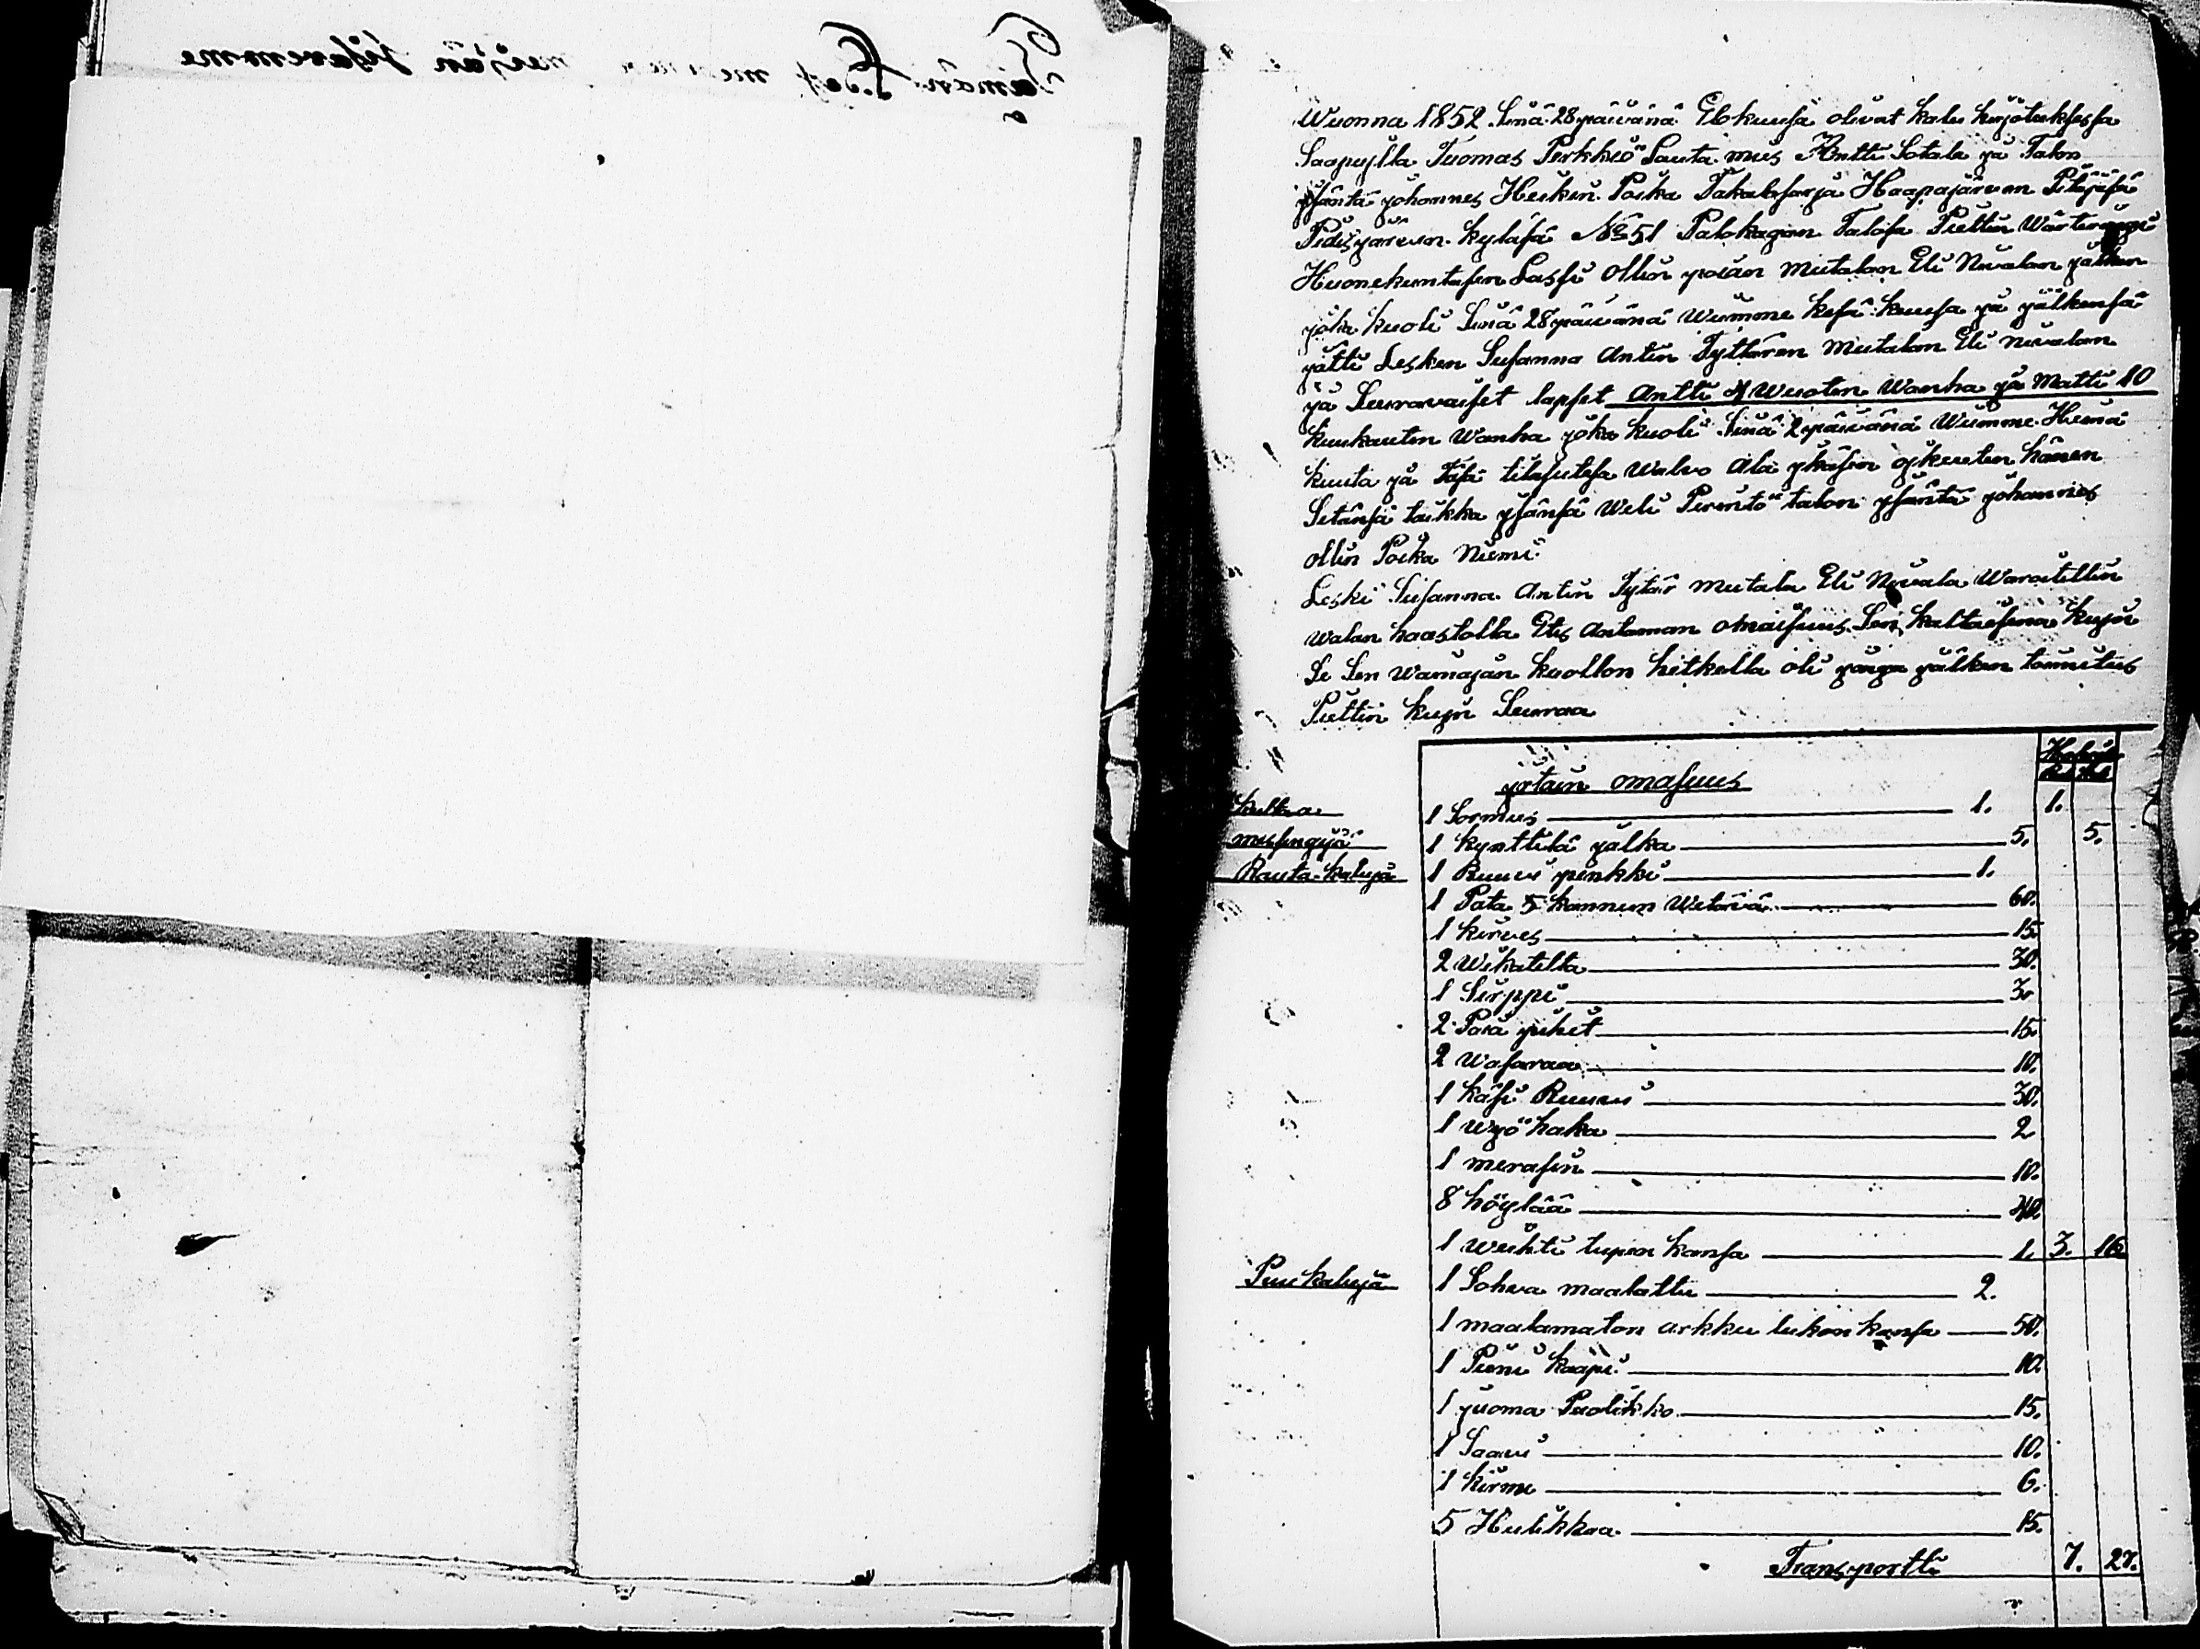 Wuonna 1852 Sinä 28 päivänä Elokuusa olivat kalu kirjotuksesa
Saapuilla Tuomas Perkkiö Lauta mies Antti Sotala ja Talon
jsäntä johannes Heikin Poika Takalosarja Haapajärven Pitäjäsä
Pidisjärven kyläsä No 51 Palokagan Talosa Piettin Wärtiränpi
Huonekuntasen Lassi Ollin pojan mutalan Eli Nivalan jälken
joka kuoli Sinä 28 päivänä Wiimme kesä kuusa ja jälkensä
jätti Lesken Susanna Antin Tyttären Mutalan Eli nivalan
ja Seuravaiset lapset Antti 4 Wuoten Wanha ja Matti 10
kuukauten Wanha joka kuoli Sinä 2 päivänä Wiimme Heinä
kuuta ja Täsä tilasutesa Walvo ala jkäsen ojkeuten hänen
Setänsä taikka jsänsä Weli Perintö talon jsäntä johannes
ollin Poika Niemi
Leski Susanna Antin Tytär mutala Eli Nivala Waroitettiin
walan haastolla Etes Antaman omaisuus Sen kaltaisena kujn
Se Sen Wainajan kuollon hetkella oli jonga jälken toimitus
Piettin kujn Seuraa
jrtain omasuus
kulta 1 Sormus 1. 1.
mesingijä 1 kynttilä jalka 5. 5.
Rauta kaluja 1 Ruuvi pinkki 1.
1 Pata 5 kannun Wetävä 60.
1 kirves 15
2 Wikatetta 30.
1 Sirppi 3.
2 Pora pihet 15.
2 Wasaraa 10.
1 käsi Ruuvi 30.
1 wyö haka 2
1 merasin 10.
8 höylää 40
1 weihti tupen kansa 1. 3. 16
Puu kaluja 1 Sohva maalattu 2.
1 maalamaton arkku lukon kansa 50.
1 Pieni kaapi 10.
1 juoma Puolikko 15.
1 Saavi 10.
1 kirnu 6.
5 Hulikkaa 15.
Transportti 7. 27.